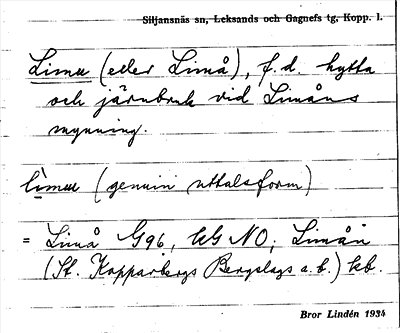 Siljansnäs sn, Leksands och Gagnefs tg, Kopp. l.
Limu (eller Limå), f.d. hytta
och järnbruk vid Limåns
mynning.
lìmu (genuin uttalsform)
= Limå G96, kb NO; Limån
(St. Kopparbergs Bergslags a.b.) kb.
Bror Lindén 1934